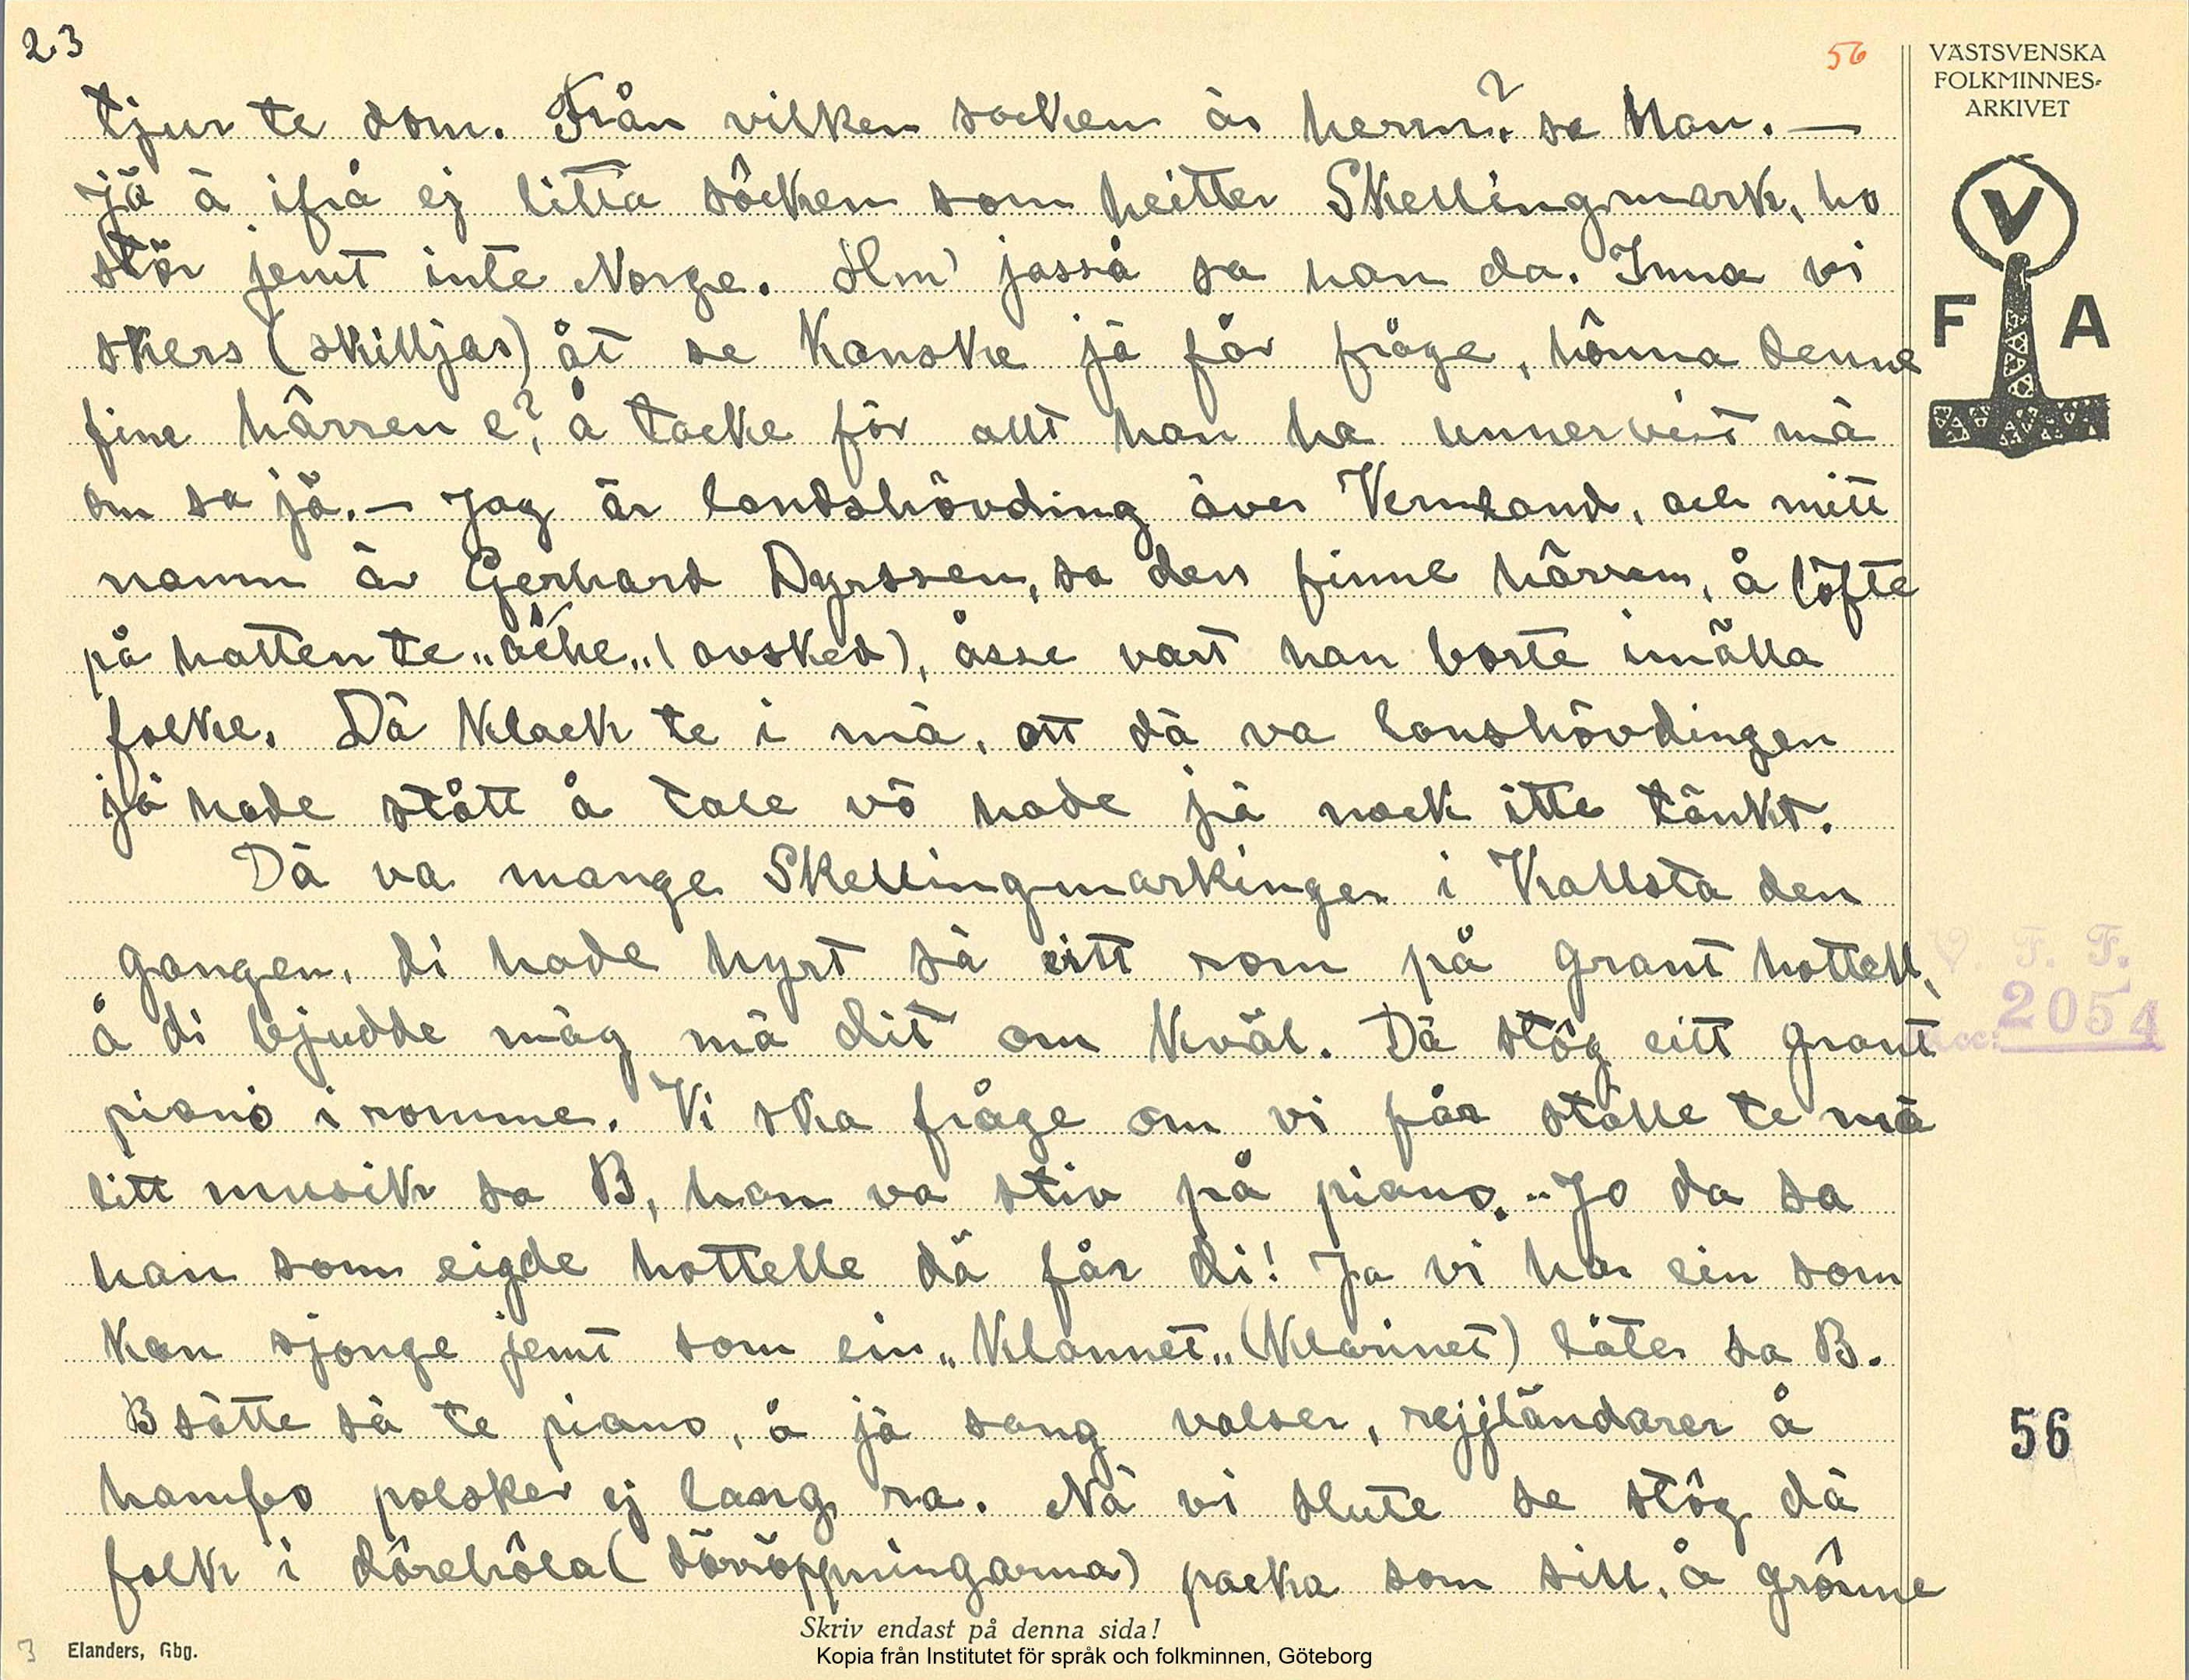 23
56
VÄSTSVENSKA
FOLKMINNES-
ARKIVET
V
F A
tjur te dom. Från vilken socken är herrn? sa Han. —
Jä ä ifrå ej litta söcken som heitter Skellingmark, ho
stör jemt inte Norge. Hm' jasså sa han da. Inna vi
skers (skilljas) åt se kanske jä får fråge, hônna denne
fine hârren e? å tacke för allt han ha unnervist mä
om sa jä. — Jag är landshövding över Vermland, och mitt
namn är Gerhard Dyrssen, sa den finne hârren, å löfte
på hatten te „ acke „ (avsked), åsse vart han borte imälla
folke. Dä klack te i mä, att dä va lanshövdingen
jä hade stått å tale vö hade jä nock itte tänkt.
Dä va mange Skellingmarkinger i Kallsta den
gangen, di hade hyrt sä eitt rom på grant hottell,
å di bjudde mäg mä dit om kväl. Dä stög eitt grant
piano i romme. Vi ska fråge om vi får ställe te mä
litt musik sa B, han va stiv på piano. „ Jo da sa
han som eigde hottelle dä får di! Ja vi har ein som
kan sjonge jemt som ein „ klannet „ (klarinet) låter sa B.
B sätte sä te piano, å jä sang valser, rejjländarer å
hambo polsker ej lang ra. Nä vi slute se stög dä
folk i dörehôla (döröppningarna) packa som sill, å grônne
V. F. F.
acc: 2054
56
Skriv endast på denna sida!
3
Elanders, Gbg.
Kopia från Institutet för språk och folkminnen, Göteborg